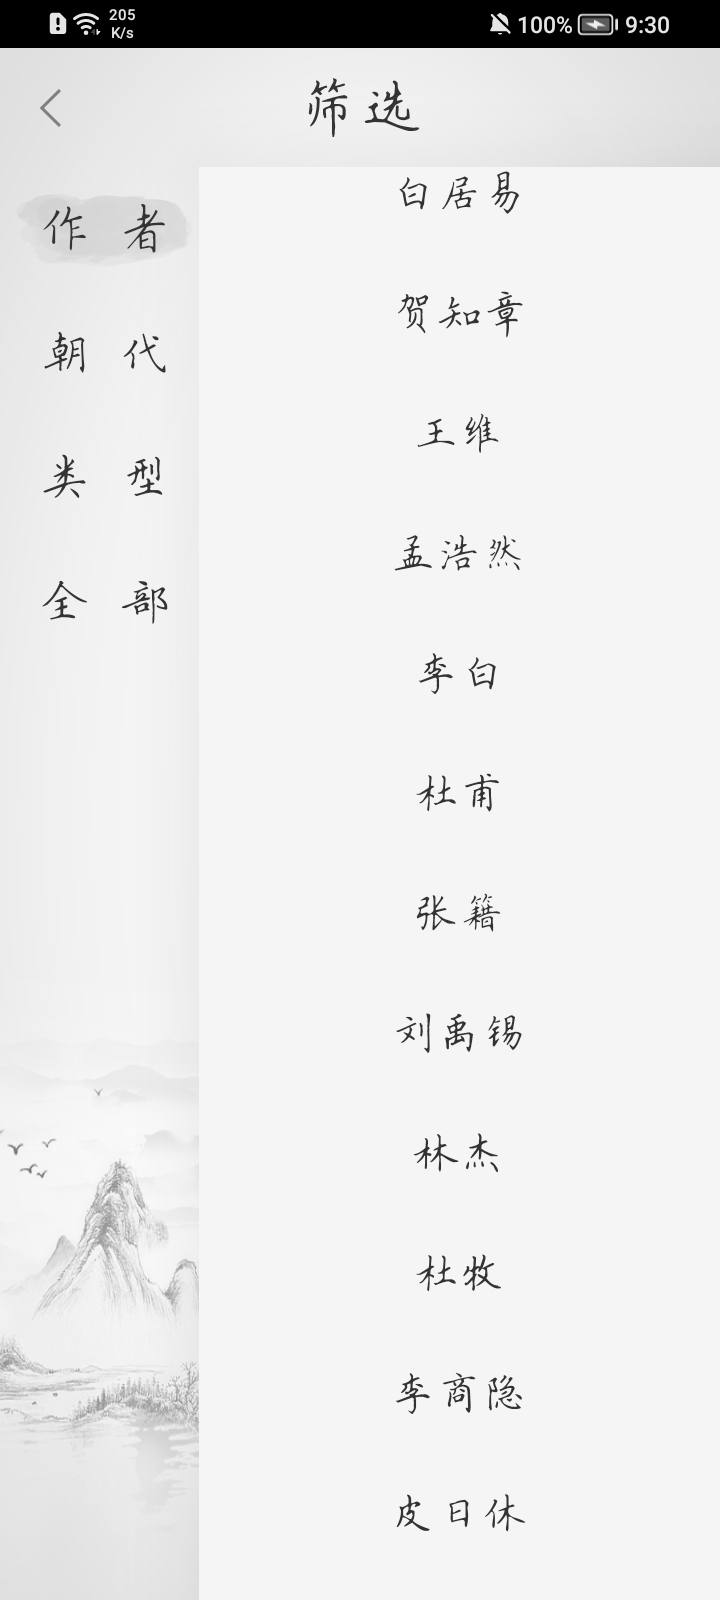 205
K/s
100%
9:30
筛选
作者
朝代
类型
全部
白居易
贺知章
王维
孟浩然
李白
杜甫
张籍
刘禹锡
林杰
杜牧
李商隐
皮日休